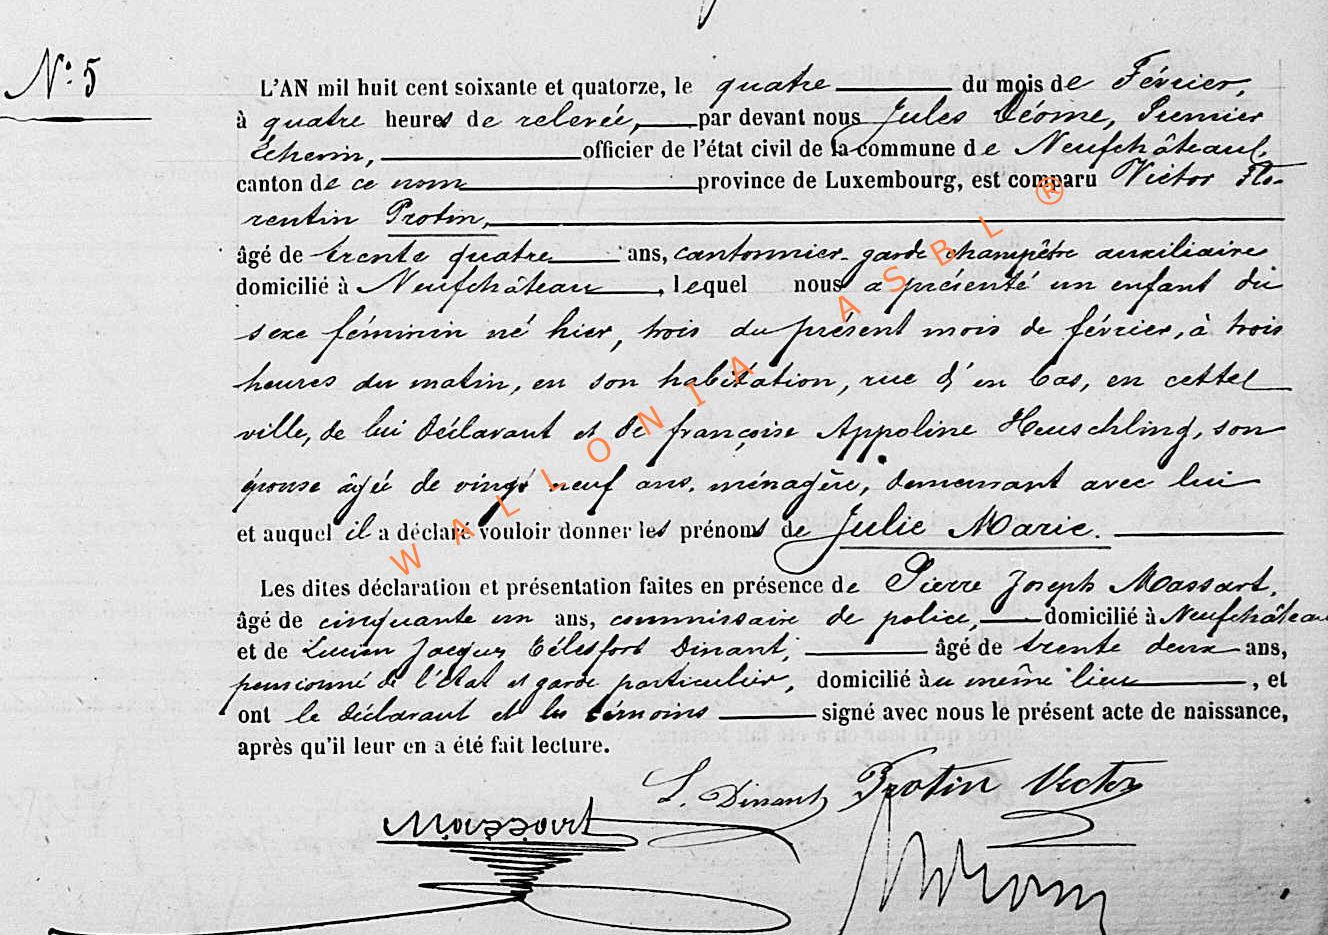 N° 5
L'AN mil huit cent soixante et quatorze, le quatre du mois de Février,
à quatre heures de relevée, par devant nous Jules Déome, Premier
Echevin, officier de l'état civil de la commune de Neufchâteau,
canton de ce nom province de Luxembourg, est comparu Victor Flo-
rentin Protin,
âgé de trente quatre ans, cantonnier-garde champêtre auxiliaire
domicilié à Neufchâteau, lequel nous a présenté un enfant du
sexe féminin né hier, trois du présent mois de février, à trois
heures du matin, en son habitation, rue d'en bas, en cette
ville, de lui déclarant et de françoise Appoline Heuschling, son
épouse âgée de vingt neuf ans, ménagère, demeurant avec lui
et auquel il a déclaré vouloir donner les prénoms de Julie Marie.
Les dites déclaration et présentation faites en présence de Pierre Joseph Massart,
âgé de cinquante un ans, commissaire de police, domicilié à Neufchâteau
et de Lucien Jacques Télesfort Dinant, âgé de trente deux ans,
pensionné de l'Etat et garde particulier, domicilié au même lieu, et
ont le déclarant et les témoins signé avec nous le présent acte de naissance,
après qu'il leur en a été fait lecture.
L. Dinant Protin Victor
Massart
WALLONIA ASBL ®